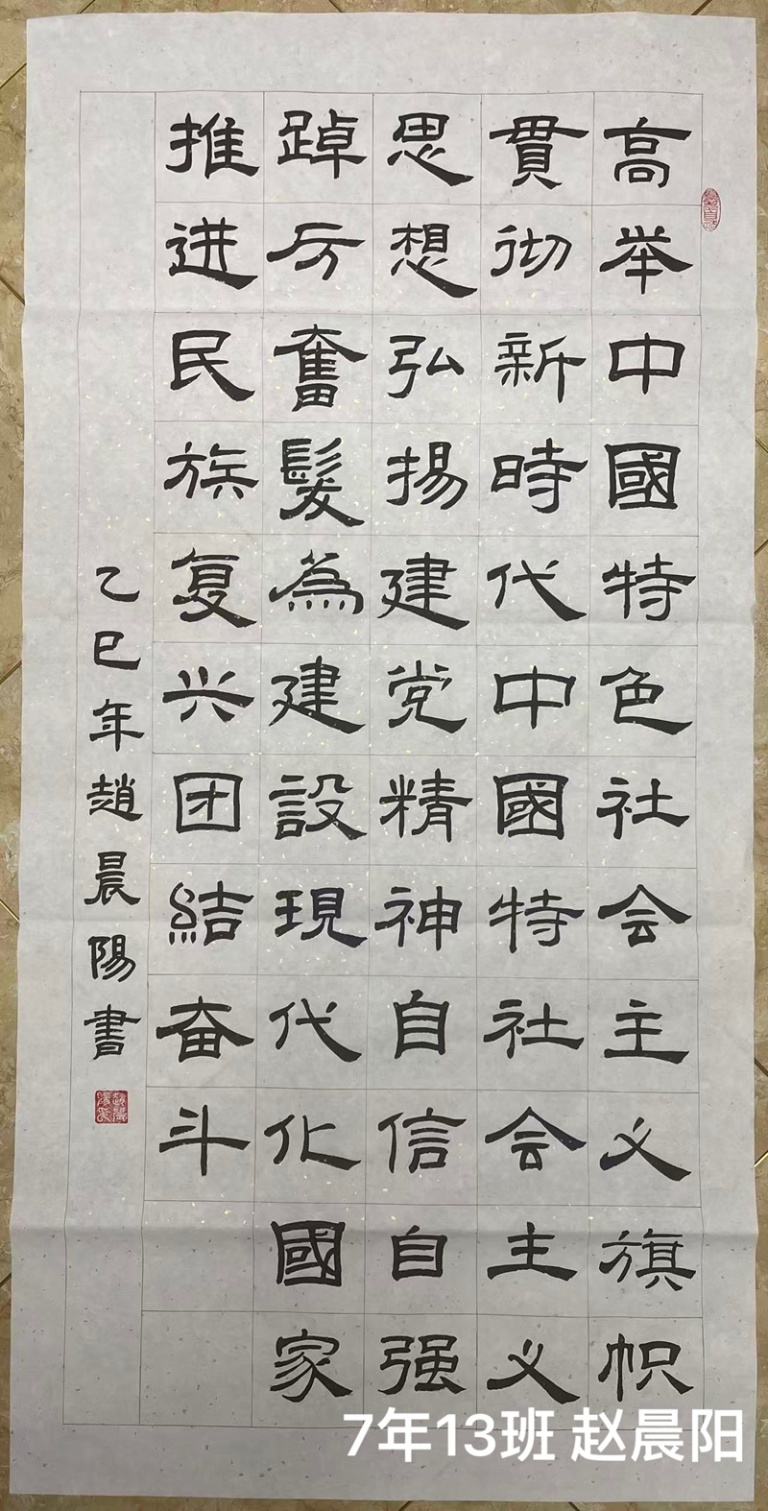 高举中國特色社会主义旗帜
貫彻新時代中國特社会主义
思想弘揚建党精神自信自强
踔厉奮髮為建設現代化國家
推进民族复兴团結奋斗
乙巳年趙晨陽書
7年13班 赵晨阳